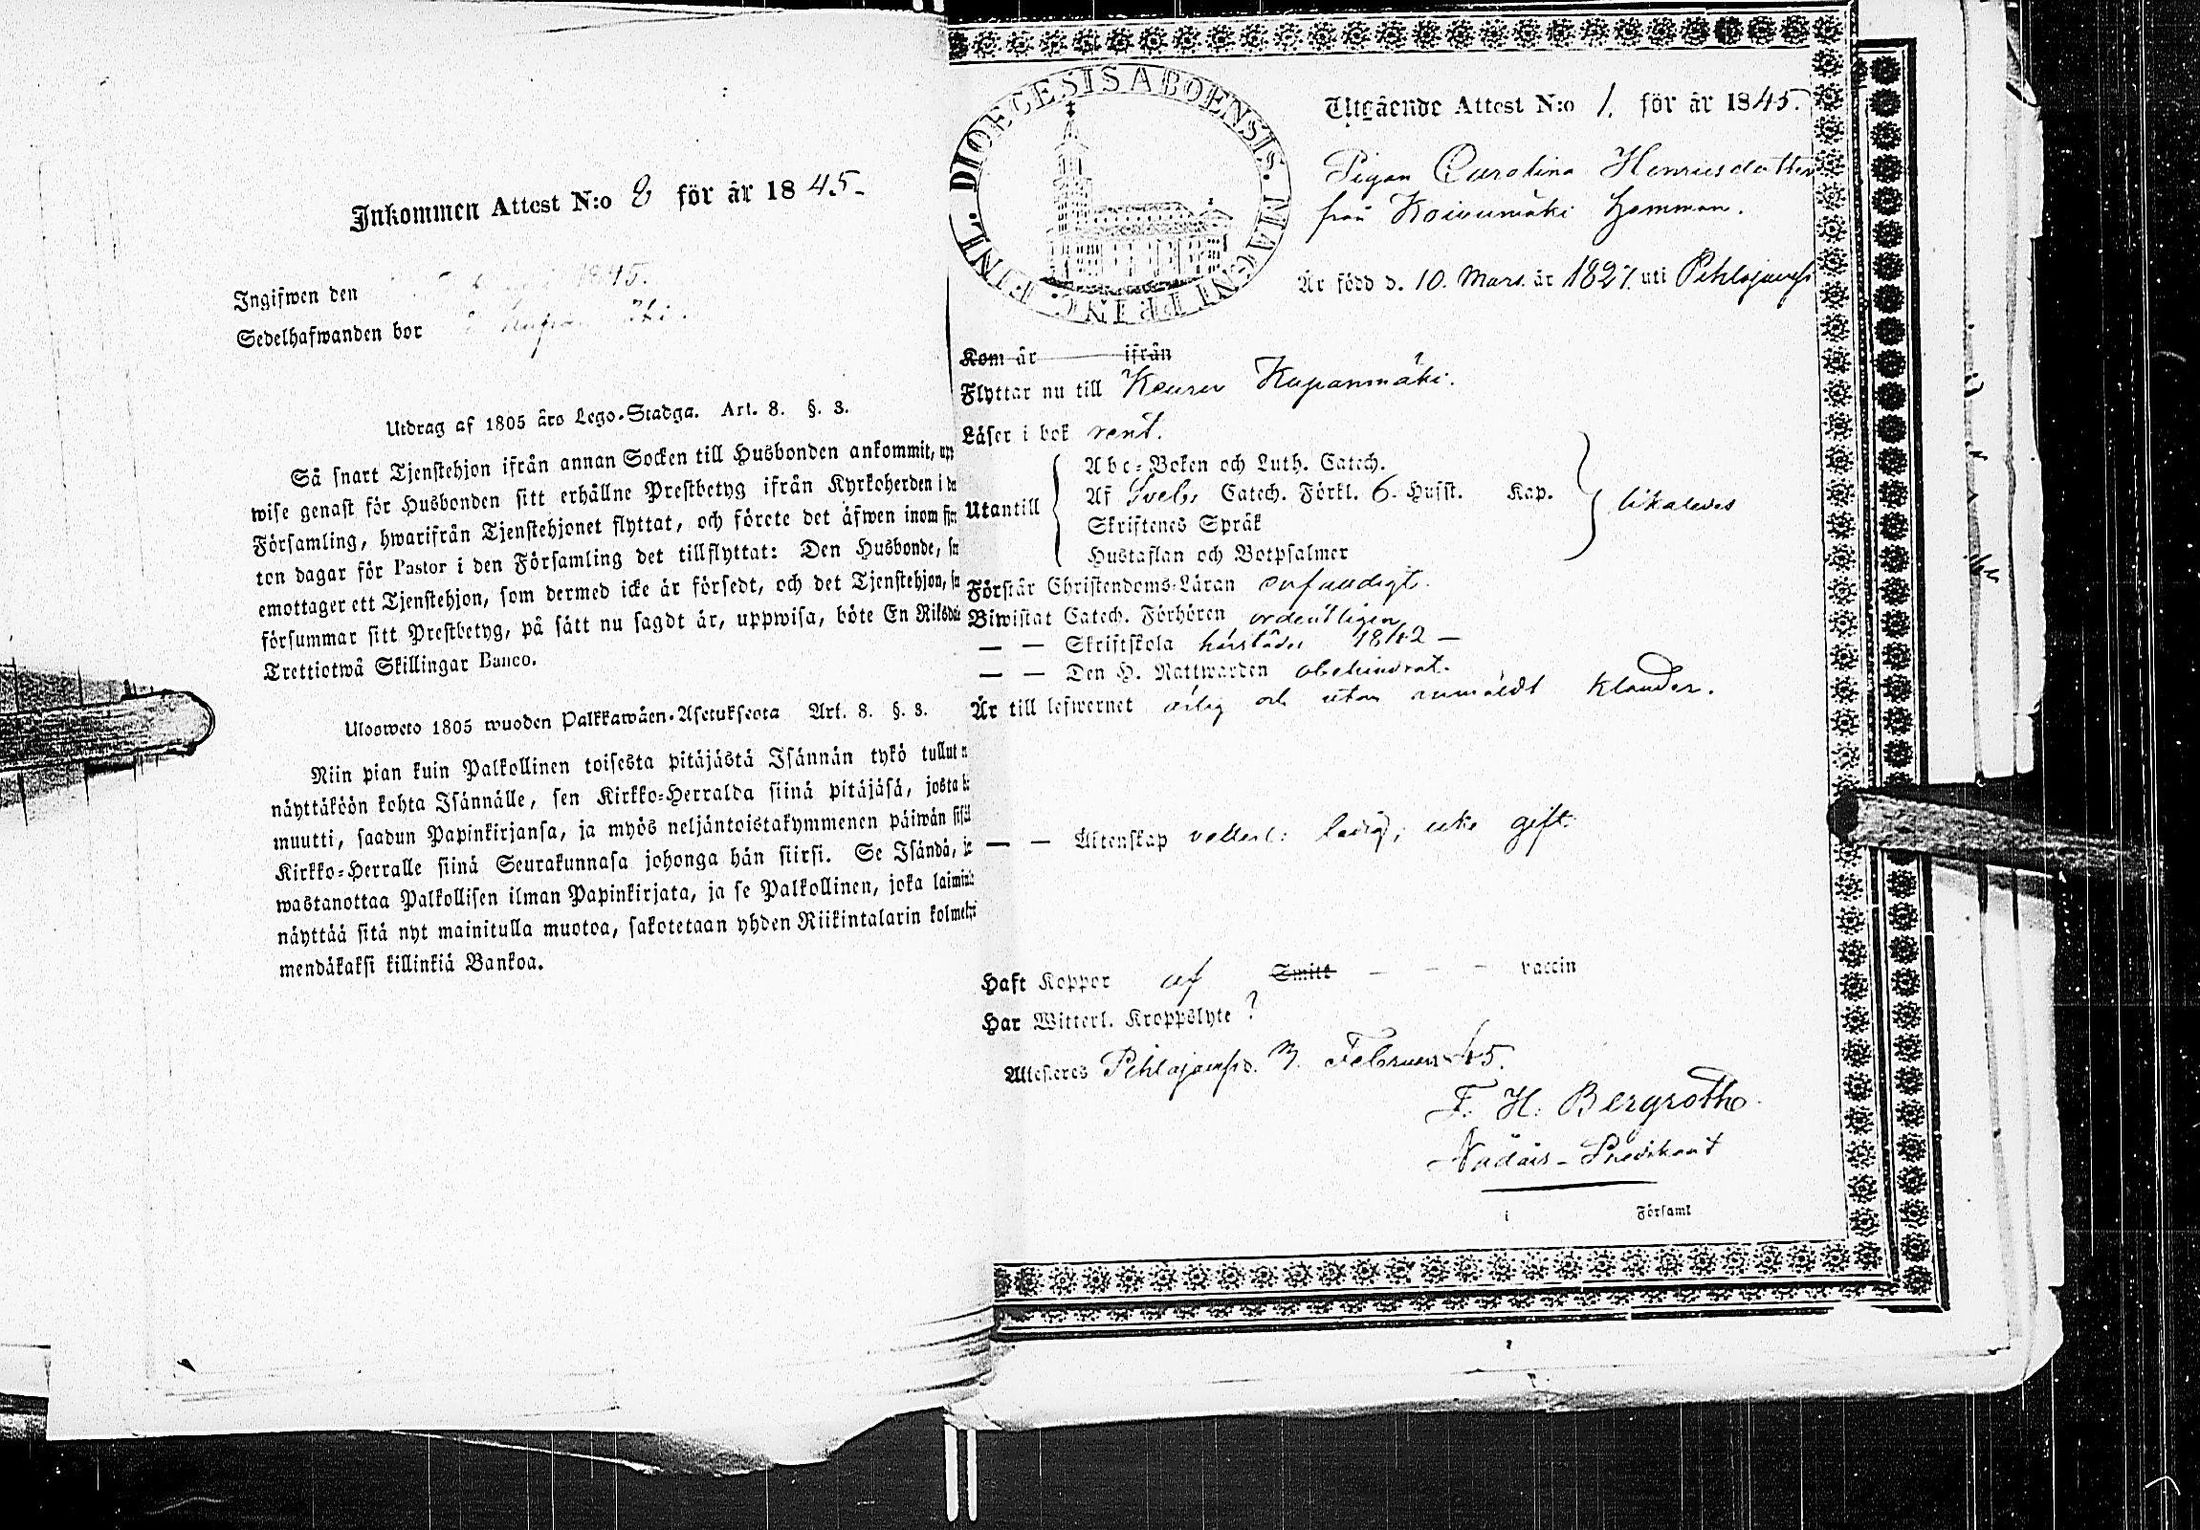 Inkommen Attest N:o 8 för år 1845.
Ingifwen den 1845.
Sedelhafwanden bor
Utdrag af 1805 års Lego-Stadga. Art. 8. §. 3.
Så snart Tjenstehjon ifrån annan Socken till Husbonden ankommit, upp
wise genast för Husbonden sitt erhållne Prestbetyg ifrån Kyrkoherden i de
Församling, hwarifrån Tjenstehjonet flyttat, och förete det äfwen inom fjor
ton dagar för Pastor i den Församling det tillflyttat: Den Husbonde, so
emottager ett Tjenstehjon, som dermed icke är försedt, och det Tjenstehjon, so
försummar sitt Prestbetyg, på sätt nu sagdt är, uppwisa, böte En Riksda
Trettiotwå Skillingar Banco.
Ulosweto 1805 wuoden Palkkawäen-Asetuksesta Art. 8. §. 3.
Niin pian kuin Palkollinen toisesta pitäjästä Isännän tykö tullut
näyttäköön kohta Isännälle, sen Kirkko-Herralda siinä pitäjäsä, josta
muutti, saadun Papinkirjansa, ja myös neljäntoistakymmenen päiwän sisäl
Kirkko-Herralle siinä Seurakunnasa johonga hän siirsi. Se Isändä, jo
wastanottaa Palkollisen ilman Papinkirjata, ja se Palkollinen, joka laimin
näyttää sitä nyt mainitulla muotoa, sakotetaan yhden Riikintalarin kolmeky
mendäkaksi killinkiä Bankoa.
DIOECESIS ABOENSIS. MAGNI PRINC. FINL.
Utgående Attest N:o 1. för år 1845.
Pigan Carolina Henricsdotter
från Koivumäki hemman.
Är född d. 10 Mars. år 1827. uti Pihlajavesi
Kom år ifrån
Flyttar nu till Keuru Kupanmäki.
Läser i bok rent.
Utantill
Abc-Boken och Luth. Catech.
Af Sveb. Catech. Förkl. 6. Husst. Kap.
Skriftenes Språk
Hustaflan och Botpsalmer
likaledes
Förstår Christendoms-Läran
Biwistat Catech. Förhören ordentligen
— — Skriftskola härstädes 1842 —
— — Den H. Nattwarden obehindrat.
Är till lefwernet ärlig och utan anmäldt klander.
— — Äktenskap vetterl: ledig, icke gift.
Haft Koppor af Smitt - - - vaccin
Har Witterl. Kroppslyte ?
Attesteras Pihlajavesi d. 3. Februari 45.
F. H. Bergroth
Nådårs-Predikant
i Församl